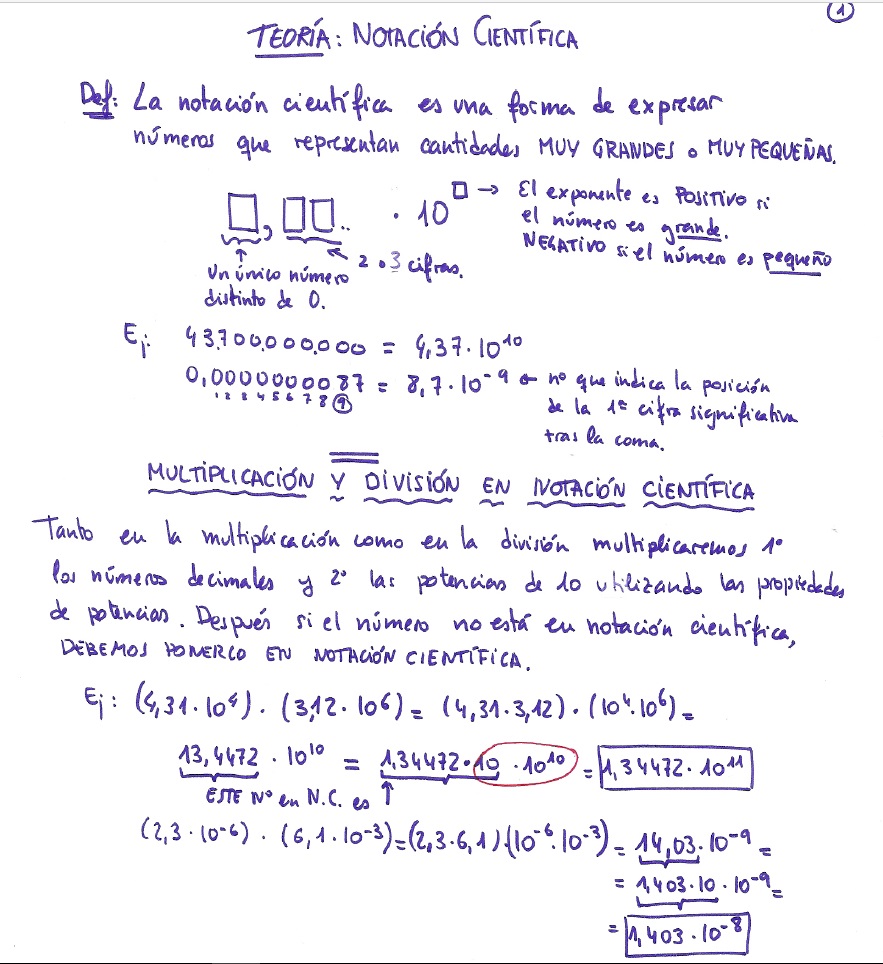 1
TEORÍA: NOTACIÓN CIENTÍFICA
Def: La notación científica es una forma de expresar
números que representan cantidades MUY GRANDES o MUY PEQUEÑAS.
□, □□.. · 10^□ → El exponente es POSITIVO si
el número es grande.
NEGATIVO si el número es pequeño
2 o 3 cifras.
Un único número
distinto de 0.
Ej: 43.700.000.000 = 4,37 · 10^10
0,0000000087 = 8,7 · 10^-9 ← nº que indica la posición
1 2 3 4 5 6 7 8 9
de la 1ª cifra significativa
tras la coma.
MULTIPLICACIÓN Y DIVISIÓN EN NOTACIÓN CIENTÍFICA
Tanto en la multiplicación como en la división multiplicaremos 1º
los números decimales y 2º las potencias de 10 utilizando las propiedades
de potencias. Después si el número no está en notación científica,
DEBEMOS PONERLO EN NOTACIÓN CIENTÍFICA.
Ej: (4,31 · 10^4) · (3,12 · 10^6) = (4,31 · 3,12) · (10^4 · 10^6) =
13,4472 · 10^10 = 1,34472 · 10 · 10^10 = 1,34472 · 10^11
ESTE Nº en N.C. es ↑
(2,3 · 10^-6) · (6,1 · 10^-3) = (2,3 · 6,1) · (10^-6 · 10^-3) = 14,03 · 10^-9 =
= 1,403 · 10 · 10^-9 =
= 1,403 · 10^-8